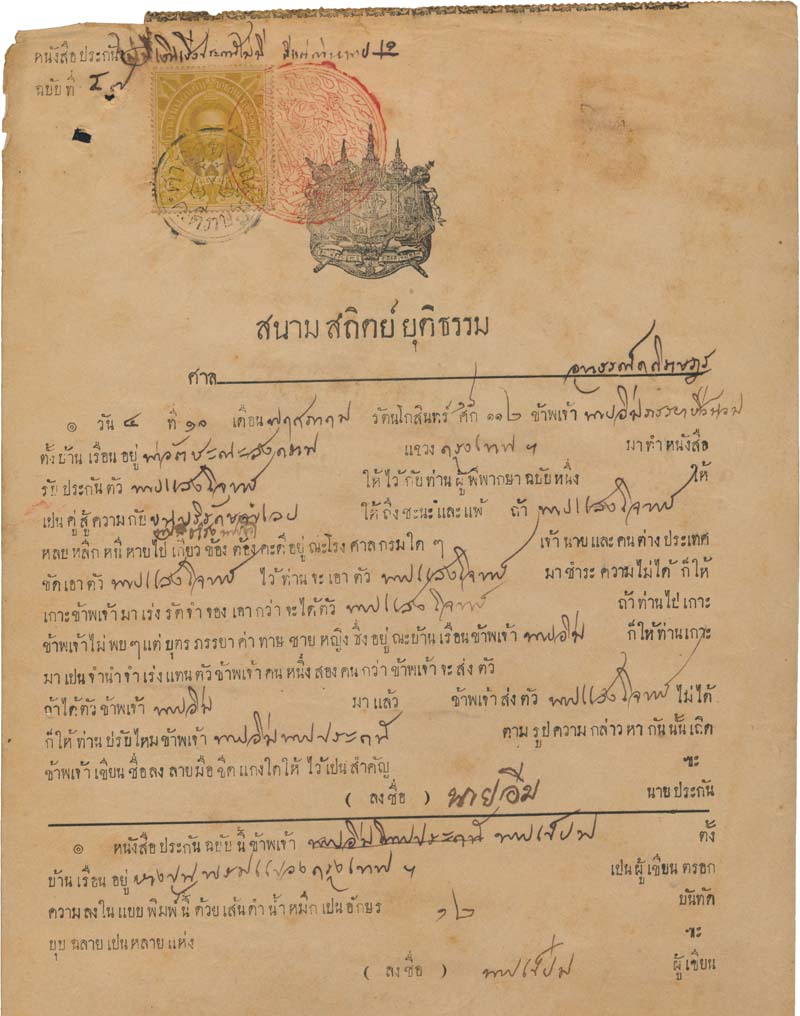 หนังสือประกัน
ฉบับที่
สนามสถิตย์ยุติธรรม
ศาล
๑ วัน ๔ ที่ ๑๐ เดือน พฤศภาคม รัตนโกสินทร์ ศก ๑๑๒ ข้าพเจ้า นายอิ่ม
ตั้งบ้านเรือนอยู่ แขวง กรุงเทพฯ มาทำหนังสือ
รับประกันตัว นายแสงโจทย์ ให้ไว้กับท่านผู้พิพากษาฉบับหนึ่ง ให้
เป็นคู่สู้ความกับ ให้ถึงชะนะและแพ้ ถ้า นายแสงโจทย์
หลบหลีกหนีหายไปเกี่ยวข้องต้องคะดีอยู่ณะโรงศาลกรมใด ๆ เจ้านายและคนต่างประเทศ
ขัดเอาตัว นายแสงโจทย์ ไว้ท่านจะเอาตัว นายแสงโจทย์ มาชำระความไม่ได้ ก็ให้
เกาะข้าพเจ้ามาเร่งรัดจำจองเอากว่าจะได้ตัว นายแสงโจทย์ ถ้าท่านไปเกาะ
ข้าพเจ้าไม่พบๆแต่บุตรภรรยาค่าทาษชายหญิงซึ่งอยู่ณะบ้านเรือนข้าพเจ้า นายอิ่ม ก็ให้ท่านเกาะ
มาเป็นจำนำจำเร่งแทนตัวข้าพเจ้าคนหนึ่งสองคนกว่าข้าพเจ้าจะส่งตัว
ถ้าได้ตัวข้าพเจ้า นายอิ่ม มาแล้ว ข้าพเจ้าส่งตัว นายแสงโจทย์ ไม่ได้
ก็ให้ท่านปรับไหมข้าพเจ้า นายอิ่มนายประกัน ตามรูปความกล่าวหากันนั้นเถิด
ข้าพเจ้าเขียนชื่อลงลายมือขีดแกงใดให้ไว้เป็นสำคัญ ฯะ
( ลงชื่อ ) นายอิ่ม นายประกัน
๑ หนังสือประกันฉบับนี้ข้าพเจ้า ตั้ง
บ้านเรือนอยู่ บางขุนพรมแขวงกรุงเทพฯ เป็นผู้เขียนตรอก
ความลงในแบบพิมพ์นี้ด้วยเส้นดำน้ำหมึกเป็นอักษร ๑๒ บันทัด
ขุบฉลายเป็นหลายแห่ง ฯะ
( ลงชื่อ ) ผู้เขียน